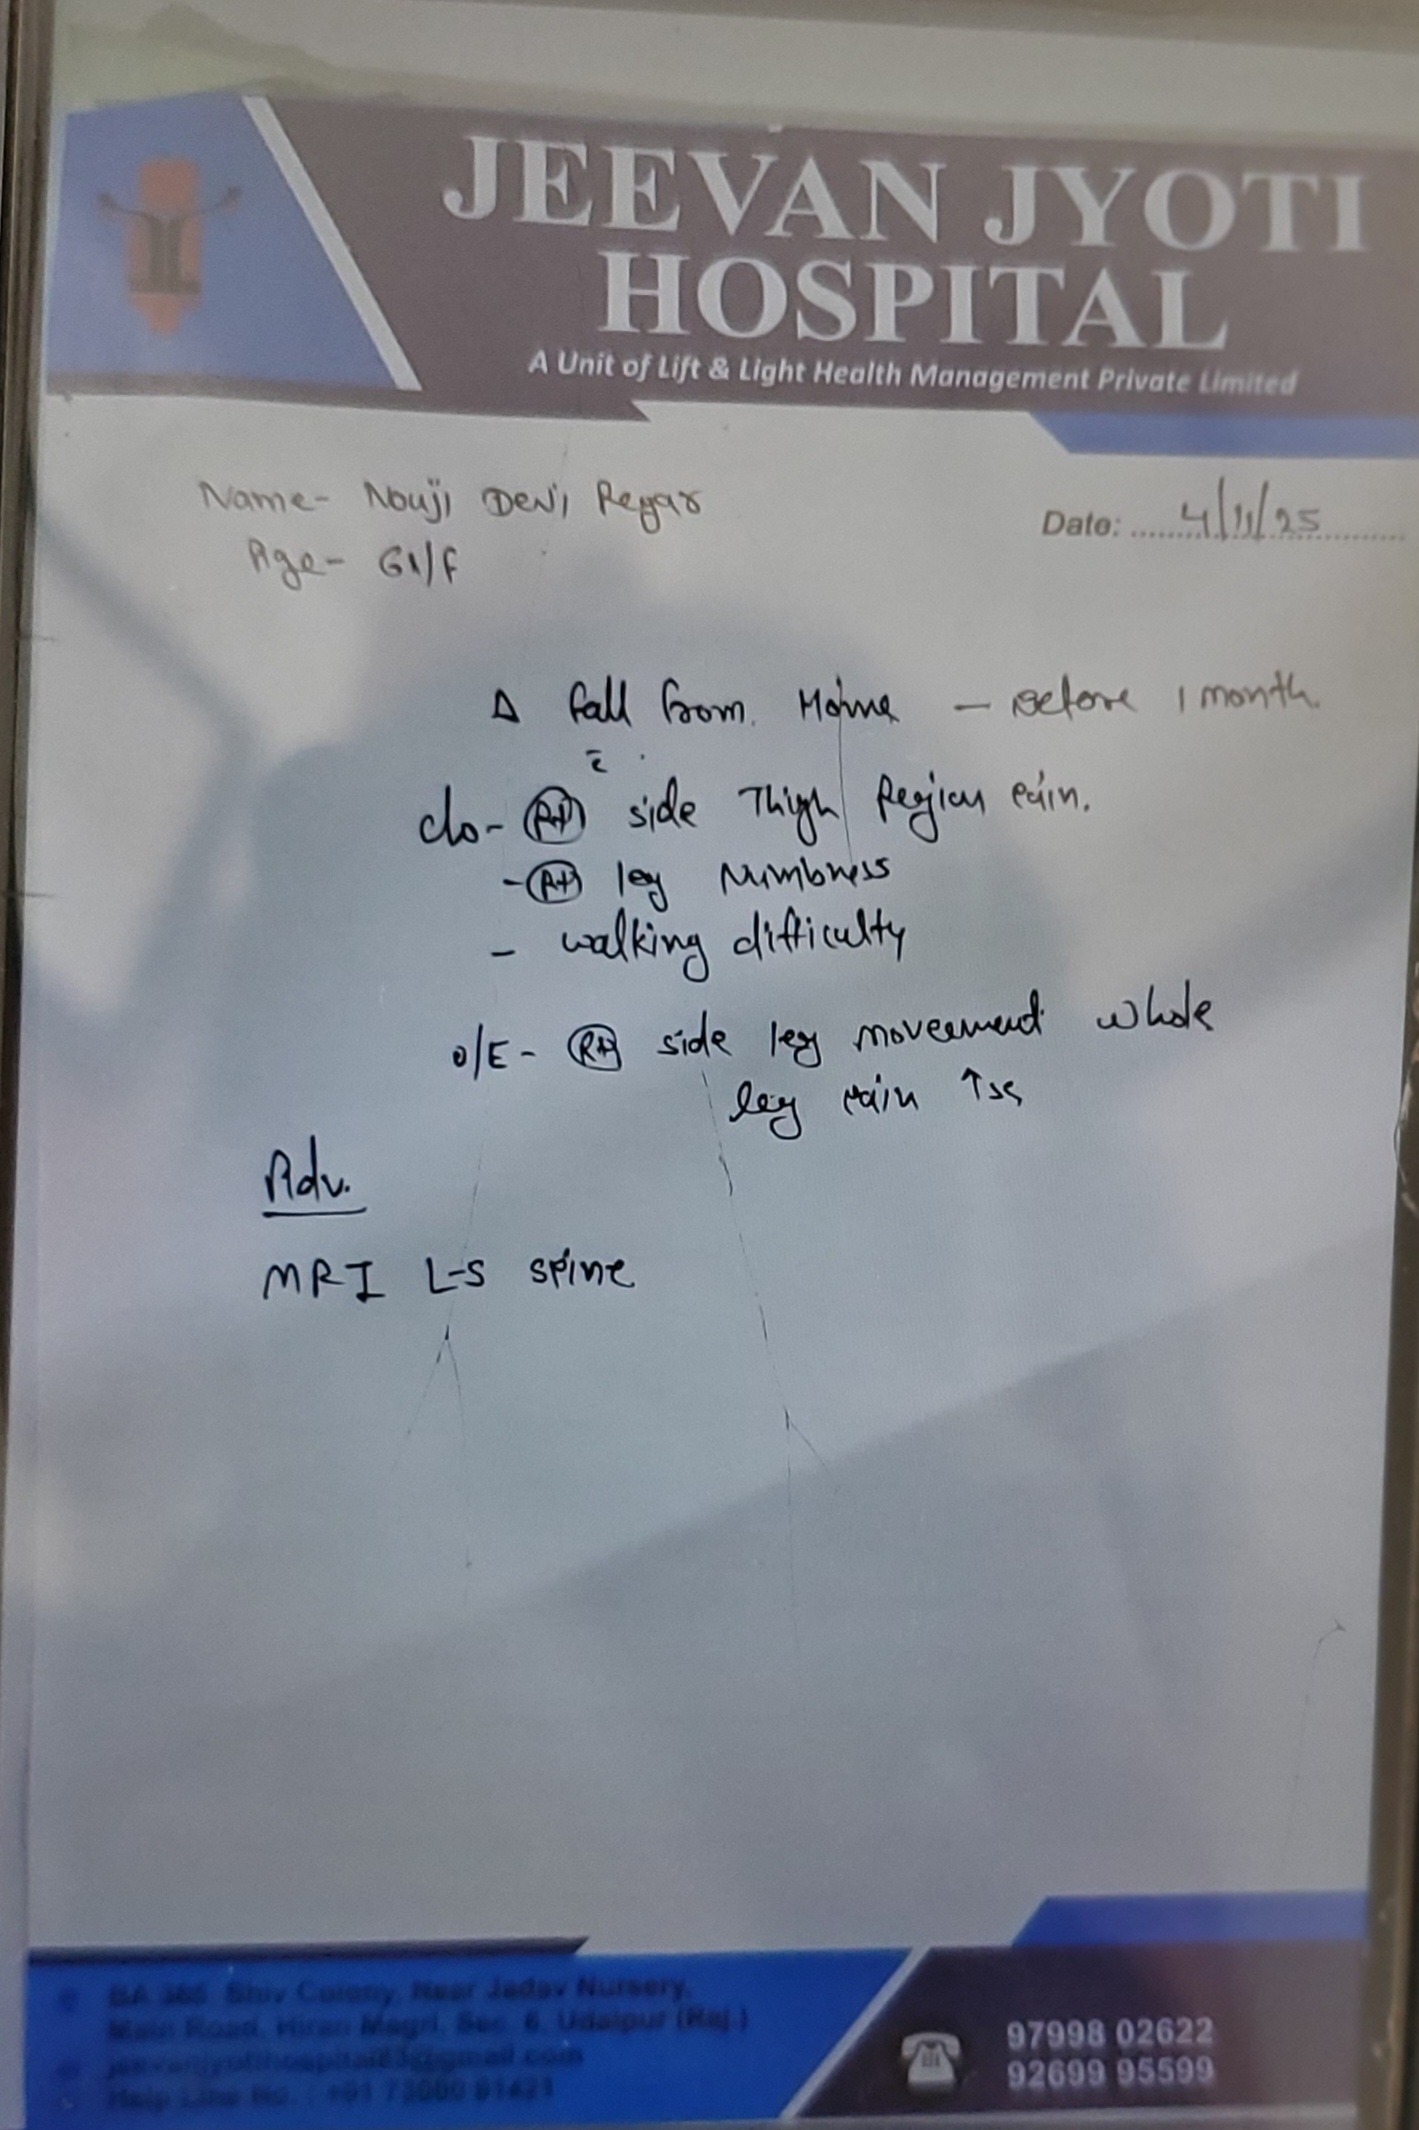 JEEVAN JYOTI
HOSPITAL
A Unit of Lift & Light Health Management Private Limited
Name- Nouji Devi Regar
Date: 4/11/25
Age- 61/F
Δ fall from Home - Before 1 month.
c̄
c/o- (Rt) side Thigh Region pain.
- (Rt) leg Numbness
- walking difficulty
o/E- (Rt) side leg movement whole
leg pain ↑ses
Adv.
MRI L-S spine
BA 365 Shiv Colony, Near Jadav Nursery,
Main Road, Hiran Magri, Sec. 6, Udaipur (Raj.)
97998 02622
jeevanjyotihospital83@gmail.com
92699 95599
Help Line No. : +91